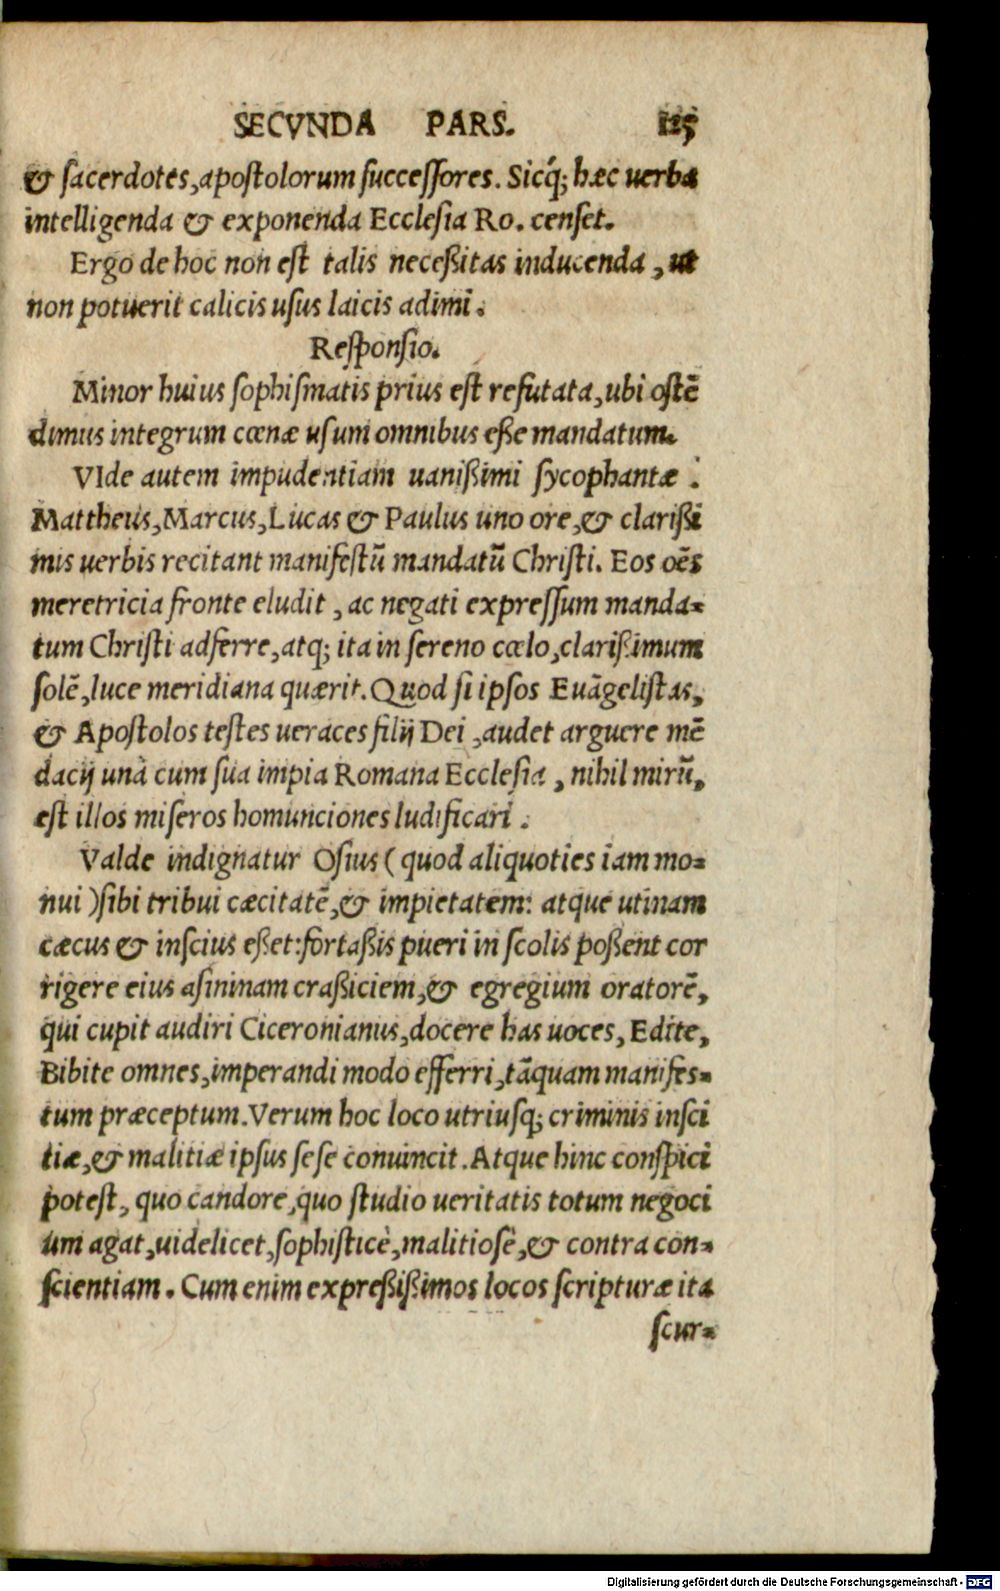 SECVNDA PARS. 125
& sacerdotes, apostolorum successores. Sicq́; hæc uerba
intelligenda & exponenda Ecclesia Ro. censet.
Ergo de hoc non est talis neceßitas inducenda, ut
non potuerit calicis usus laicis adimi.
Responsio.
Minor huius sophismatis prius est refutata, ubi ostē
dimus integrum cœnæ usum omnibus eße mandatum.
VIde autem impudentiam uanißimi sycophantæ.
Mattheus, Marcus, Lucas & Paulus uno ore, & clarißi
mis uerbis recitant manifestū mandatū Christi. Eos oēs
meretricia fronte eludit, ac negati expressum manda=
tum Christi adferre, atq; ita in sereno cœlo, clarißimum
solē, luce meridiana quærit. Quod si ipsos Euāgelistas,
& Apostolos testes ueraces filij Dei, audet arguere mē
dacij unà cum sua impia Romana Ecclesia, nihil mirū,
est illos miseros homunciones ludificari.
Valde indignatur Osius (quod aliquoties iam mo=
nui) sibi tribui cæcitatē, & impietatem: atque utinam
cæcus & inscius eßet: fortaßis pueri in scolis poßent cor
rigere eius asininam craßiciem, & egregium oratorē,
qui cupit audiri Ciceronianus, docere has uoces, Edite,
Bibite omnes, imperandi modo efferri, tāquam manifes=
tum præceptum. Verum hoc loco utriusq; criminis insci
tiæ, & malitiæ ipsus sese conuincit. Atque hinc conspici
potest, quo candore, quo studio ueritatis totum negoci
um agat, uidelicet, sophisticè, malitiosè, & contra con=
scientiam. Cum enim expreßißimos locos scripturæ ita
scur=
Digitalisierung gefördert durch die Deutsche Forschungsgemeinschaft - DFG